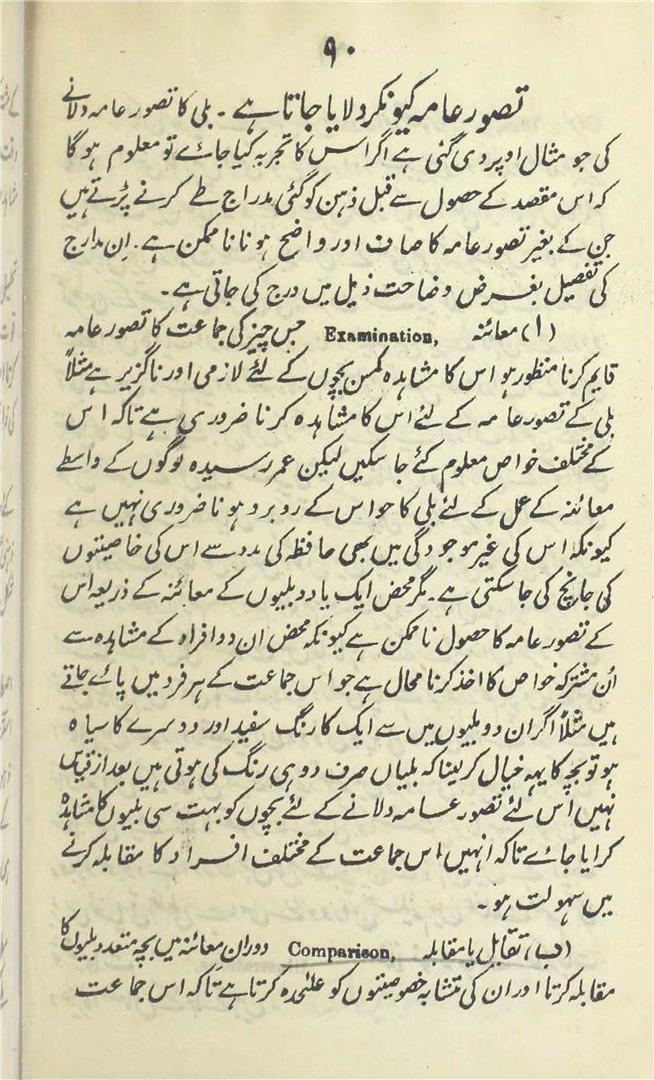 ۹۰
تصور عامہ کیونکر دلایا جاتا ہے۔ بلی کا تصور عامہ دلانے
کی جو مثال اوپر دی گئی ہے اگر اس کا تجربہ کیا جائے تو معلوم ہو گا
کہ اس مقصد کے حصول سے قبل ذہن کو کئی مدراج طے کرنے پڑتے ہیں
جن کے بغیر تصور عامہ کا صاف اور واضح ہونا ناممکن ہے۔ ان مدارج
کی تفصیل بغرض وضاحت ذیل میں درج کی جاتی ہے۔
(ا) معائنہ Examination, جس چیز کی جماعت کا تصور عامہ
قایم کرنا منظور ہو اس کا مشاہدہ کمسن بچوں کے لئے لازمی اور ناگزیر ہے مثلاً
بلی کے تصور عامہ کے لئے اس کا مشاہدہ کرنا ضروری ہے تاکہ اس
کے مختلف خواص معلوم کئے جا سکیں لیکن عمر رسیدہ لوگوں کے واسطے
معائنہ کے عمل کے لئے بلی کا حواس کے روبرو ہونا ضروری نہیں ہے
کیونکہ اس کی غیر موجودگی میں بھی حافظہ کی مدد سے اس کی خاصیتوں
کی جانچ کی جا سکتی ہے۔ مگر محض ایک یا دو بلیوں کے معائنہ کے ذریعہ اس
کے تصور عامہ کا حصول ناممکن ہے کیونکہ محض ان دو افراد کے مشاہدہ سے
اُن مشترکہ خواص کا اخذ کرنا محال ہے جو اس جماعت کے ہر فرد میں پائے جاتے
ہیں مثلاً اگر ان دو بلیوں میں سے ایک کا رنگ سفید اور دوسرے کا سیاہ
ہو تو بچہ کا یہہ خیال کر لینا کہ بلیاں صرف دو ہی رنگ کی ہوتی ہیں بعد از قیاس
نہیں اس لئے تصور عامہ دلانے کے لئے بچوں کو بہت سی بلیوں کا مشاہدہ
کرایا جائے تاکہ انہیں اس جماعت کے مختلف افراد کا مقابلہ کرنے
میں سہولت ہو۔
(ب) تقابل یا مقابلہ Comparison, دوران معائنہ میں بچہ متعدد بلیوں کا
مقابلہ کرتا اور ان کی متشابہ خصوصیتوں کو علٰحدہ کرتا ہے تاکہ اس جماعت